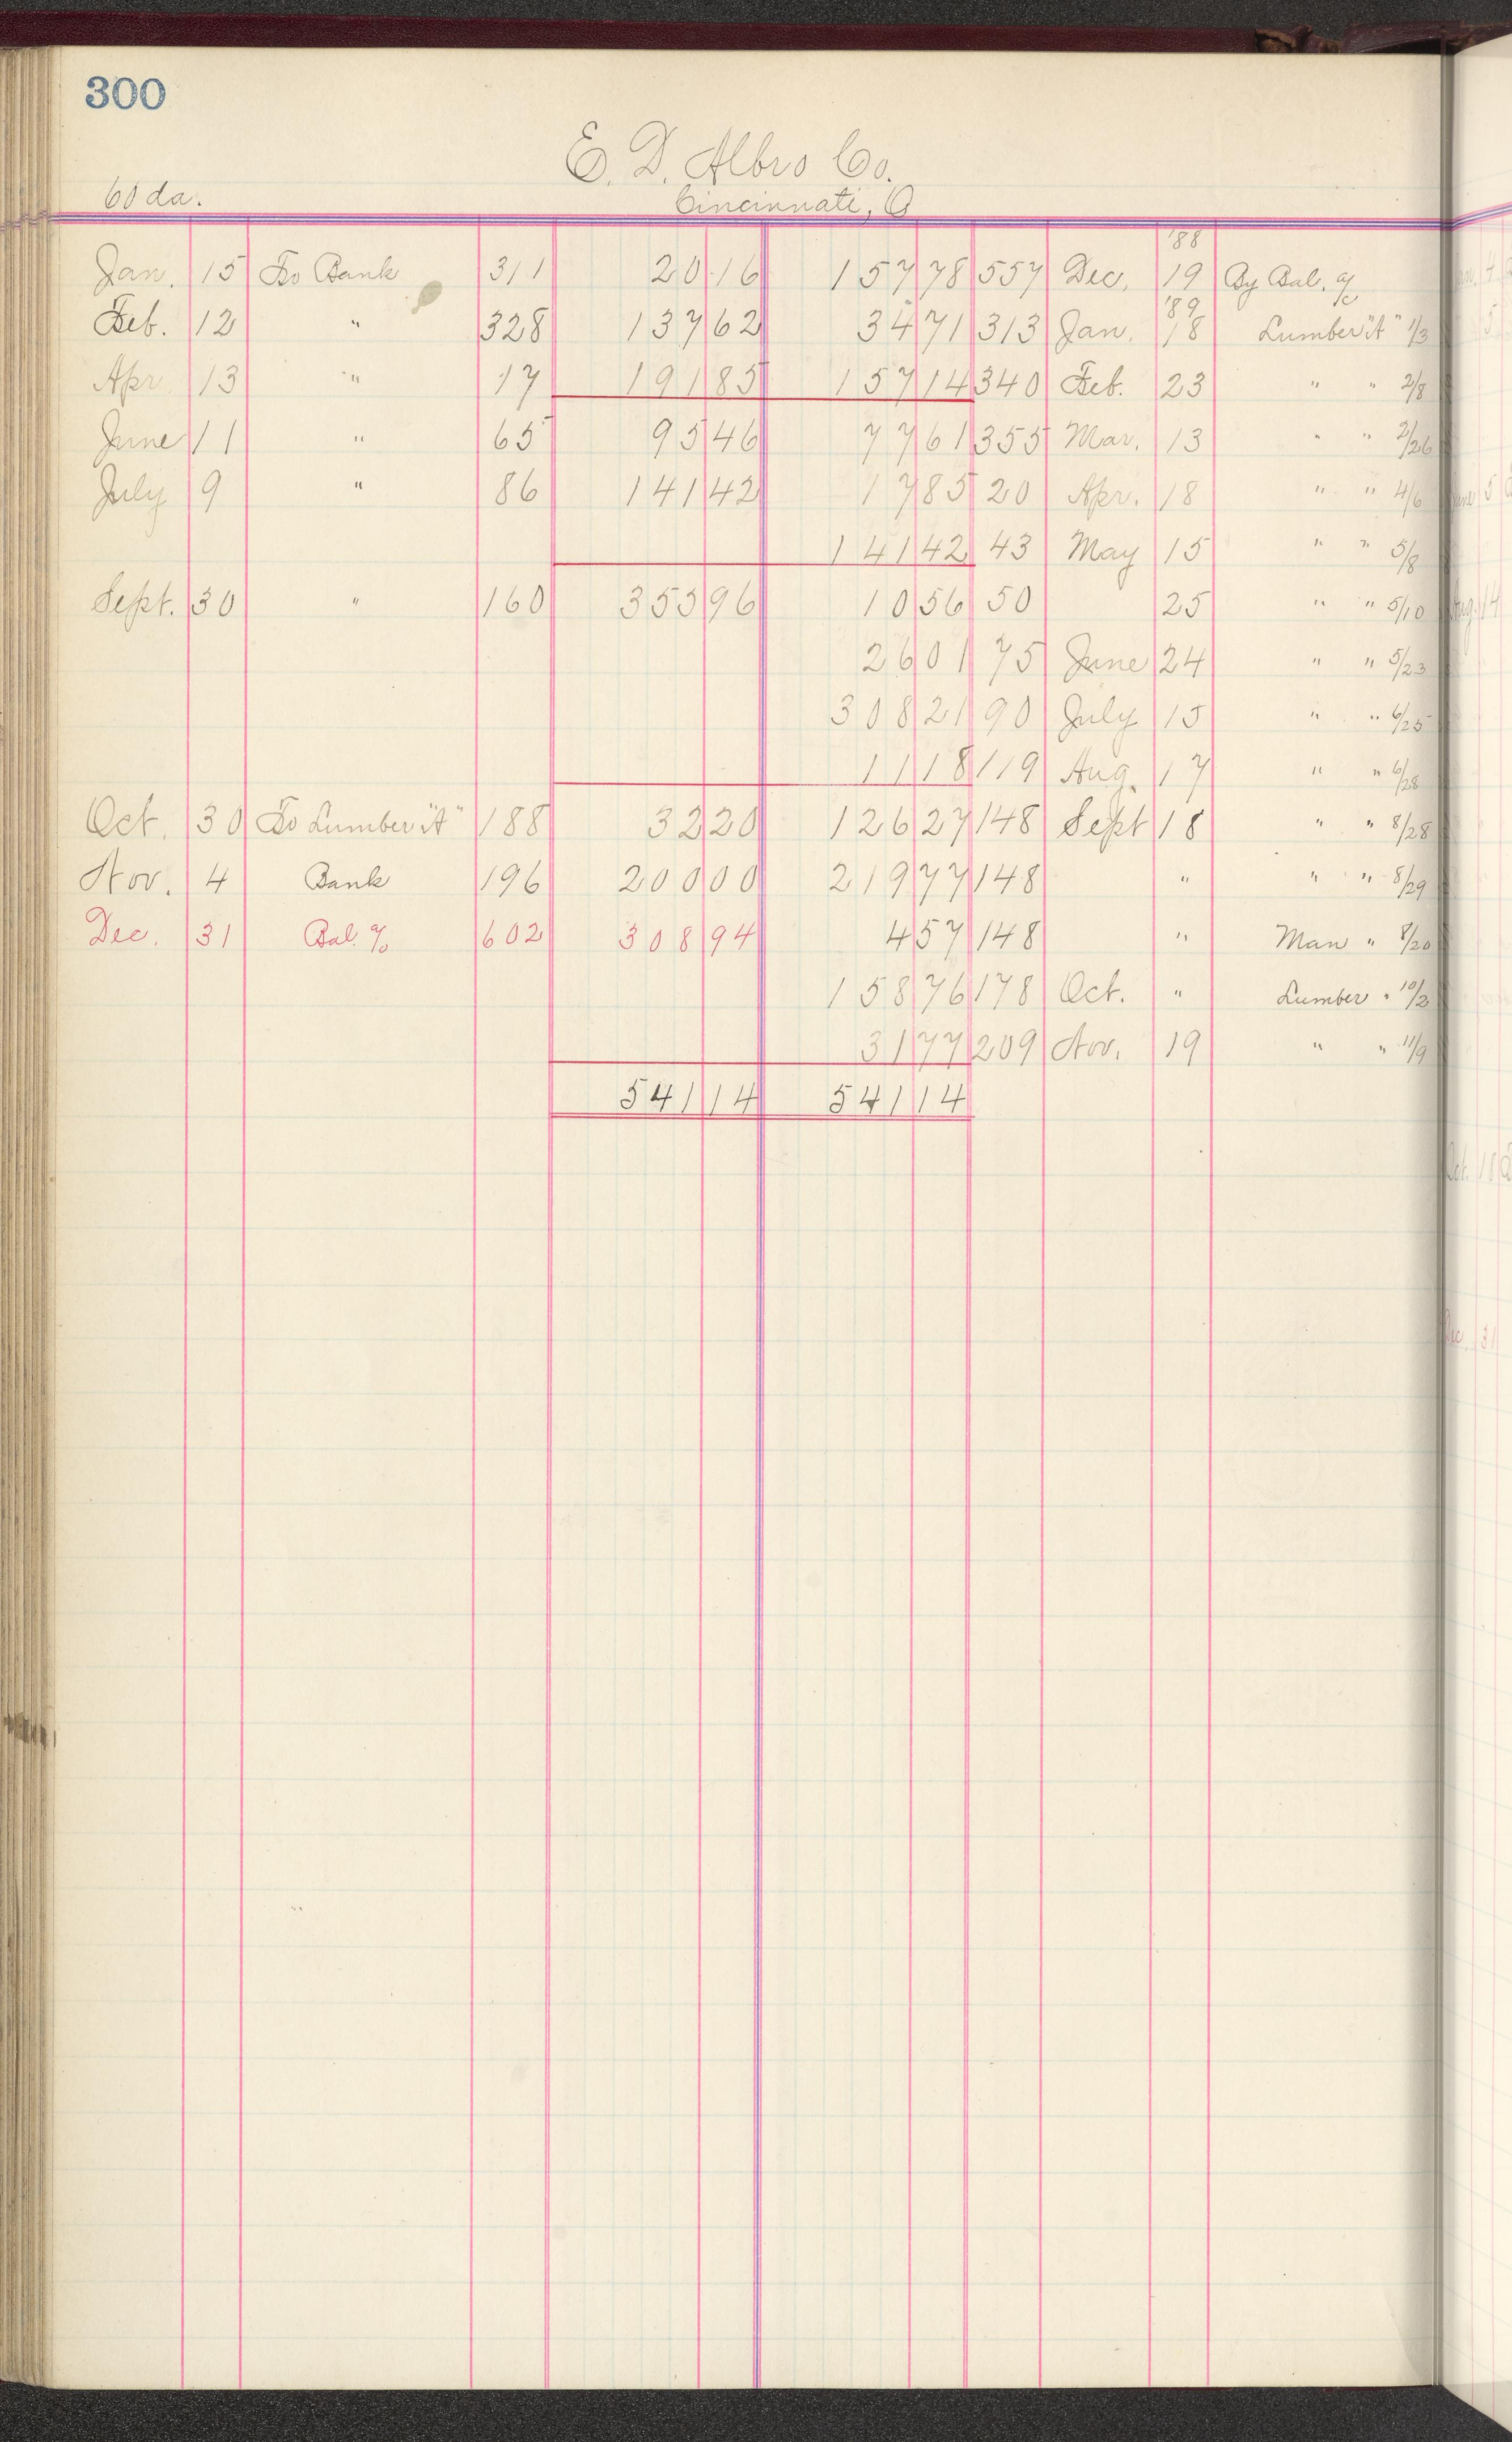 300
E. D. Albro Co.
60 da. Cincinnati, O
'88
Jan. 15 To Bank 311 20 16 157 78 557 Dec. 19 By Bal. a/c
'89
Feb. 12 " 328 137 62 34 71 313 Jan. 18 Lumber "A" 1/3
Apr. 13 " 17 191 85 157 14 340 Feb. 23 " " 2/8
June 11 " 65 95 46 77 61 355 Mar. 13 " " 2/26
July 9 " 86 141 42 17 85 20 Apr. 18 " " 4/6
141 42 43 May 15 " " 5/8
Sept. 30 " 160 353 96 10 56 50 25 " " 5/10
26 01 75 June 24 " " 5/23
308 21 90 July 15 " " 6/25
11 18 119 Aug. 17 " " 6/28
Oct. 30 To Lumber "A" 188 32 20 126 27 148 Sept 18 " " 8/28
Nov. 4 Bank 196 200 00 219 77 148 " " " 8/29
Dec. 31 Bal. a/c 602 308 94 4 57 148 " Man " 8/20
158 76 178 Oct. " Lumber " 10/2
31 77 209 Nov. 19 " " 11/9
541 14 541 14